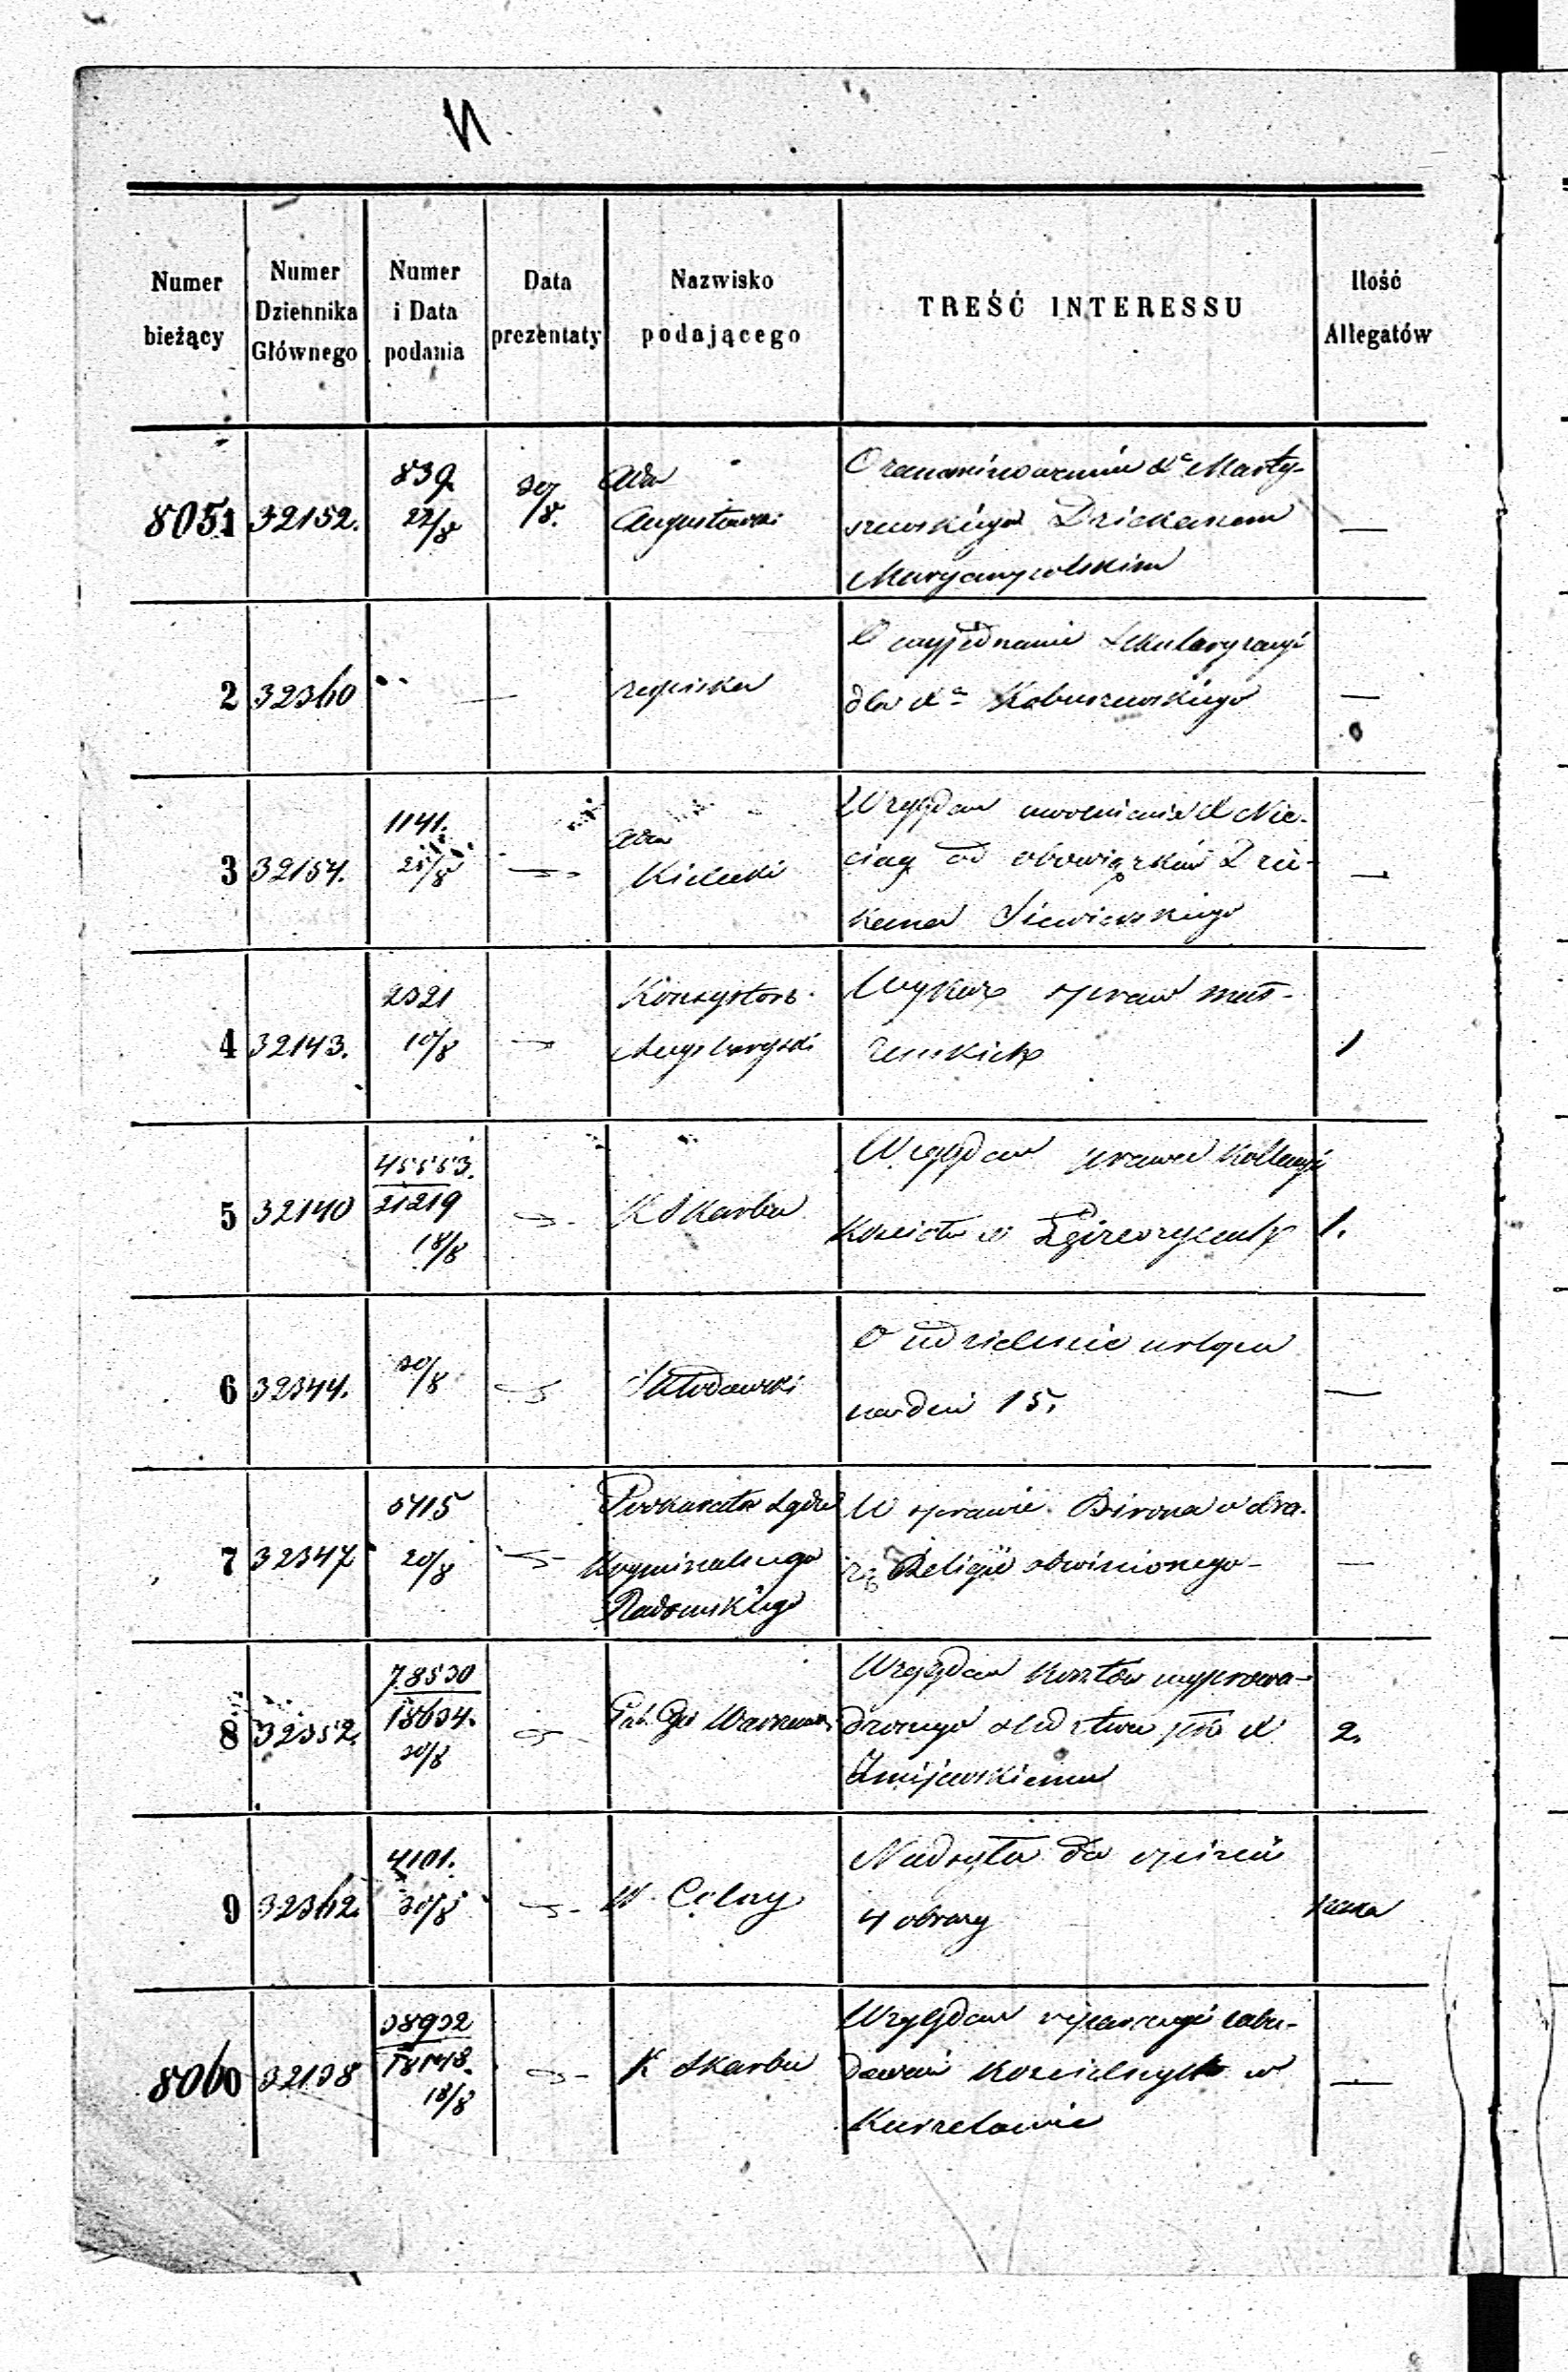 N
Numer bieżący
Numer Dziennika Głównego
Numer i Data podania
Data prezentaty
Nazwisko podającego
TREŚĆ INTERESSU
Ilość Allegatów
8051 32152. 839. 22/8 30/8. Adm Augustowski
O zanominowaniu Xa Marty-
szewskiego Dziekanem
Maryampolskim
—
2 32360 — zapiska
O wyjednanie Sekularyzacyi
dla Xa Kobuszewskiego
—
3 32154. 1141. 25/8 Adm Kielecki
Względem uwolnienia X Nie-
ciag od obowiązków Dzie-
kana Siewierskiego
—
4 32143. 2321 10/8 Konsystorz Augsburgski
Wykaz spraw małż-
żeńskich
1
5 32140 45553. 21219 18/8 K Skarbu
Względem prawa Kollacyi
Kościoła w
1.
6 32344. 30/8 Kłodawski
O udzielenie urlopu
na dni 15.
—
7 32347 5715 20/8 Prokurator Sądu
Kryminalnego
Radomskiego
W sprawie Birona o
Religii obwinionego
—
8 32352. 78530 18634. 30/8 Gub. Warszaw
Względem kosztów wyprowa-
dzonego śledztwa pko X
Żmijewskiemu
2.
9 32362. 4101. 30/8 W. Celny
Nadsyła do opinii
4 obrazy
paka
8060 32138 38902 18148. 18/8 K Skarbu
Względem reparacyi zabu-
dowań Kościelnych w
Kurzelowie
—